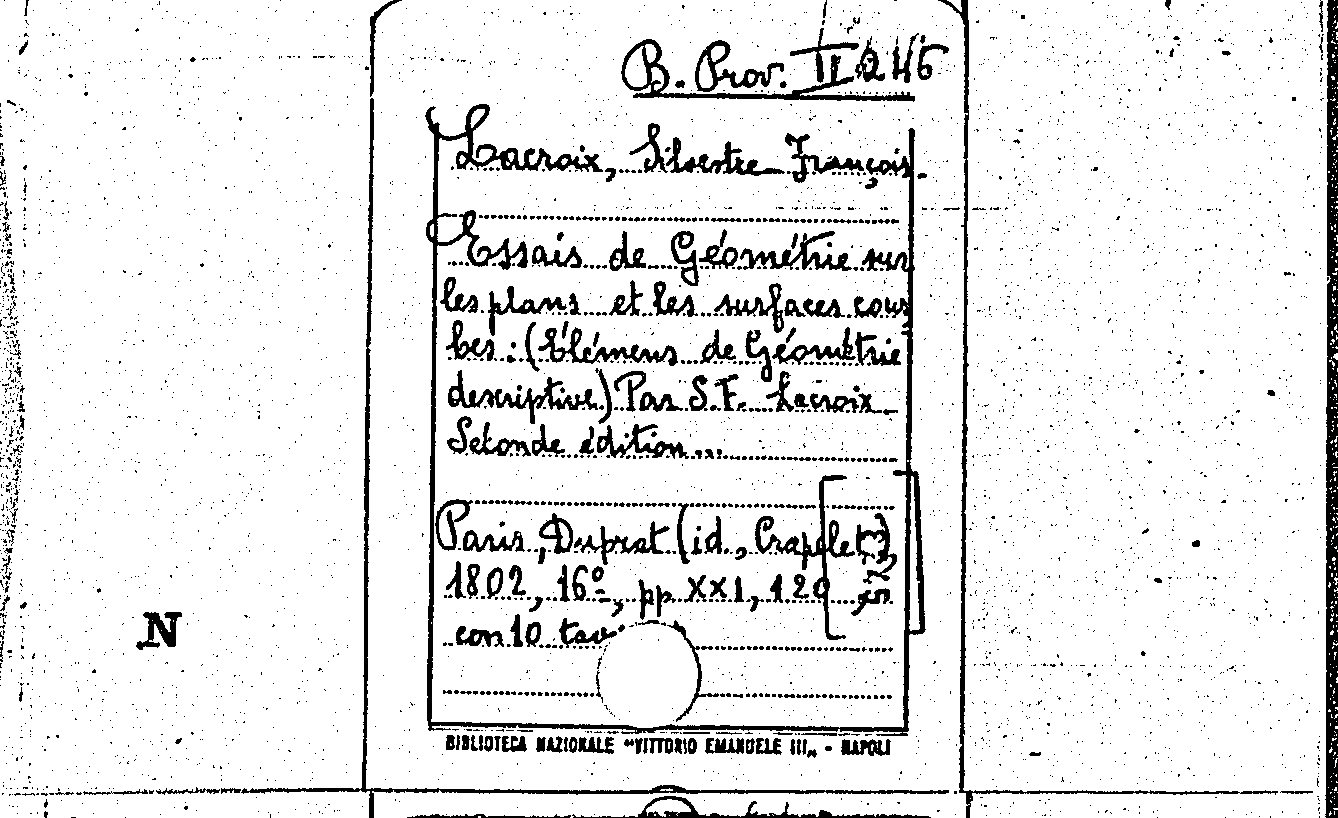 B. Prov. II 246
Lacroix, Silvestre François.
Essais de Géométrie sur
les plans et les surfaces cour
bes : (Élémens de Géométrie
descriptive) Par S. F. Lacroix
Seconde édition ...
Paris, Duprat (id., Crapelet),
1802, 16º, pp XXI, 120
con 10 tav
N
BIBLIOTECA NAZIONALE "VITTORIO EMANUELE III„ - NAPOLI